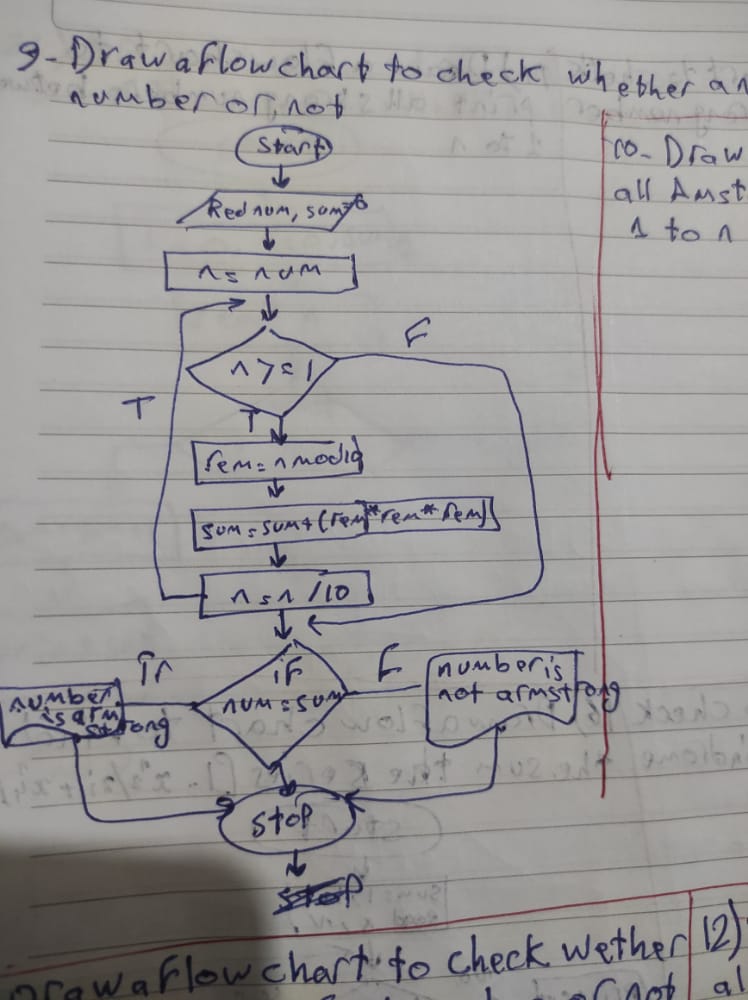 9- Draw a flow chart to check whether an
number or not
Start
Red num, sum=0
n = num
n >= 1
F
T
T
rem = n mod 10
sum = sum + (rem * rem * rem)
n = n / 10
if
num = sum
Tr
F
number
is arm
strong
number is
not armstrong
Stop
Stop
10- Draw
all Amst
1 to n
Draw a flow chart to check wether
or not
12)
al